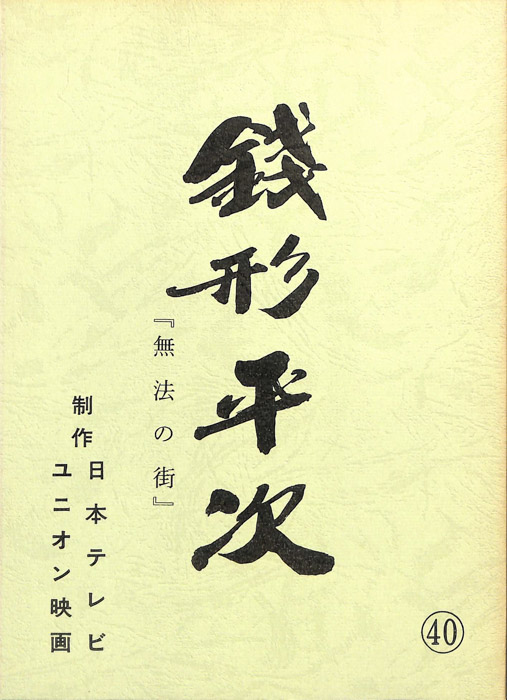 錢形平次
『無法の街』
制作
日本テレビ
ユニオン映画
㊵